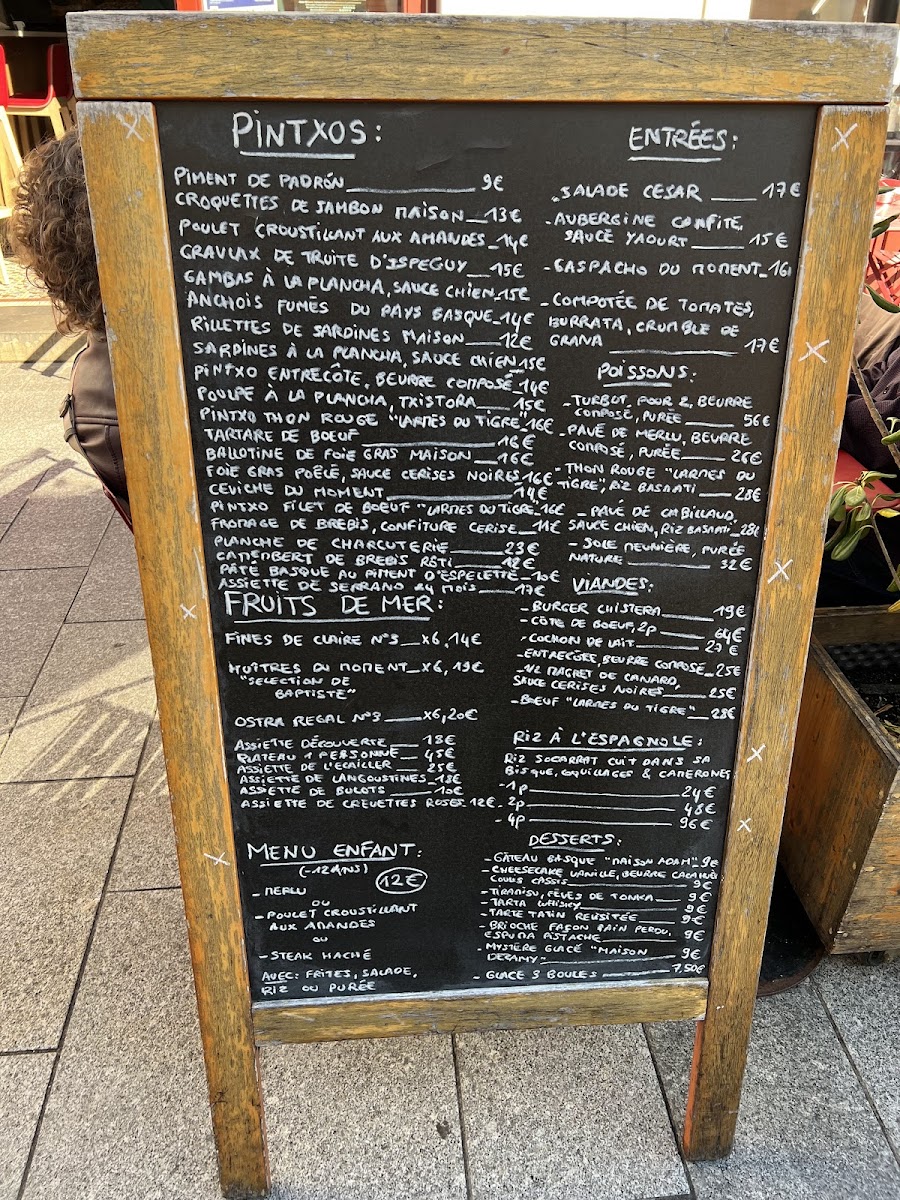 PINTXOS:
PIMENT DE PADRÓN 9€
CROQUETTES DE JAMBON MAISON 13€
POULET CROUSTILLANT AUX AMANDES 14€
GRAVLAX DE TRUITE D'ISPEGUY 15€
GAMBAS À LA PLANCHA, SAUCE CHIEN 15€
ANCHOIS FUMÉS DU PAYS BASQUE 14€
RILLETTES DE SARDINES MAISON 12€
SARDINES À LA PLANCHA, SAUCE CHIEN 15€
PINTXO ENTRECÔTE, BEURRE COMPOSÉ 14€
POULPE À LA PLANCHA, TXISTORA 15€
PINTXO THON ROUGE "LARMES DU TIGRE" 16€
TARTARE DE BOEUF 16€
BALLOTINE DE FOIE GRAS MAISON 16€
FOIE GRAS POÊLÉ, SAUCE CERISES NOIRES 16€
CEVICHE DU MOMENT 14€
PINTXO FILET DE BOEUF "LARMES DU TIGRE 16€
FROMAGE DE BREBIS, CONFITURE CERISE 11€
PLANCHE DE CHARCUTERIE 23€
CAMEMBERT DE BREBIS RÔTI 18€
PÂTÉ BASQUE AU PIMENT D'ESPELETTE 10€
ASSIETTE DE SERRANO 24 MOIS 17€
FRUITS DE MER:
FINES DE CLAIRE N°3 x6, 14€
HUÎTRES DU MOMENT x6, 19€
"SELECTION DE
BAPTISTE"
OSTRA REGAL N°3 x6, 20€
ASSIETTE DÉCOUVERTE 18€
PLATEAU 1 PERSONNE 45€
ASSIETTE DE L'ECAILLER 25€
ASSIETTE DE LANGOUSTINES 18€
ASSIETTE DE BULOTS 10€
ASSIETTE DE CREVETTES ROSES 12€
MENU ENFANT:
(-12ANS) 12€
- MERLU
OU
- POULET CROUSTILLANT
AUX AMANDES
OU
- STEAK HACHÉ
AVEC: FRITES, SALADE,
RIZ OU PURÉE
ENTRÉES:
- SALADE CESAR 17€
- AUBERGINE CONFITE,
SAUCE YAOURT 15€
- GASPACHO DU MOMENT 16
- COMPOTÉE DE TOMATES,
BURRATA, CRUMBLE DE
GRANA 17€
POISSONS:
- TURBOT, POUR 2, BEURRE
COMPOSÉ, PURÉE 56€
- PAVÉ DE MERLU, BEURRE
COMPOSÉ, PURÉE 26€
- THON ROUGE "LARMES DU
TIGRE", RIZ BASMATI 28€
- PAVÉ DE CABILLAUD,
SAUCE CHIEN, RIZ BASMATI 28€
- SOLE MEUNIÈRE, PURÉE
NATURE 32€
VIANDES:
- BURGER CHISTERA 19€
- CÔTE DE BOEUF, 2p 64€
- COCHON DE LAIT 27€
- ENTRECÔTE, BEURRE COMPOSÉ 25€
- 1/2 MAGRET DE CANARD,
SAUCE CERISES NOIRES 25€
- BOEUF "LARMES DU TIGRE" 28€
RIZ À L'ESPAGNOLE:
RIZ SOCARRAT CUIT DANS SA
BISQUE, COQUILLAGES & CAMERONES
- 1p 24€
- 2p 48€
- 4p 96€
DESSERTS:
- GÂTEAU BASQUE "MAISON ADAM" 9€
- CHEESECAKE VANILLE, BEURRE CACAHUÈ
COULIS CASSIS 9€
- TIRAMISU, FÈVES DE TONKA 9€
- TARTA WHISKY 9€
- TARTE TATIN REVISITÉE 9€
- BRIOCHE FAÇON PAIN PERDU,
ESPUMA PISTACHE 9€
- MYSTÈRE GLACÉ "MAISON
DERAMY" 9€
- GLACE 3 BOULES 7,50€